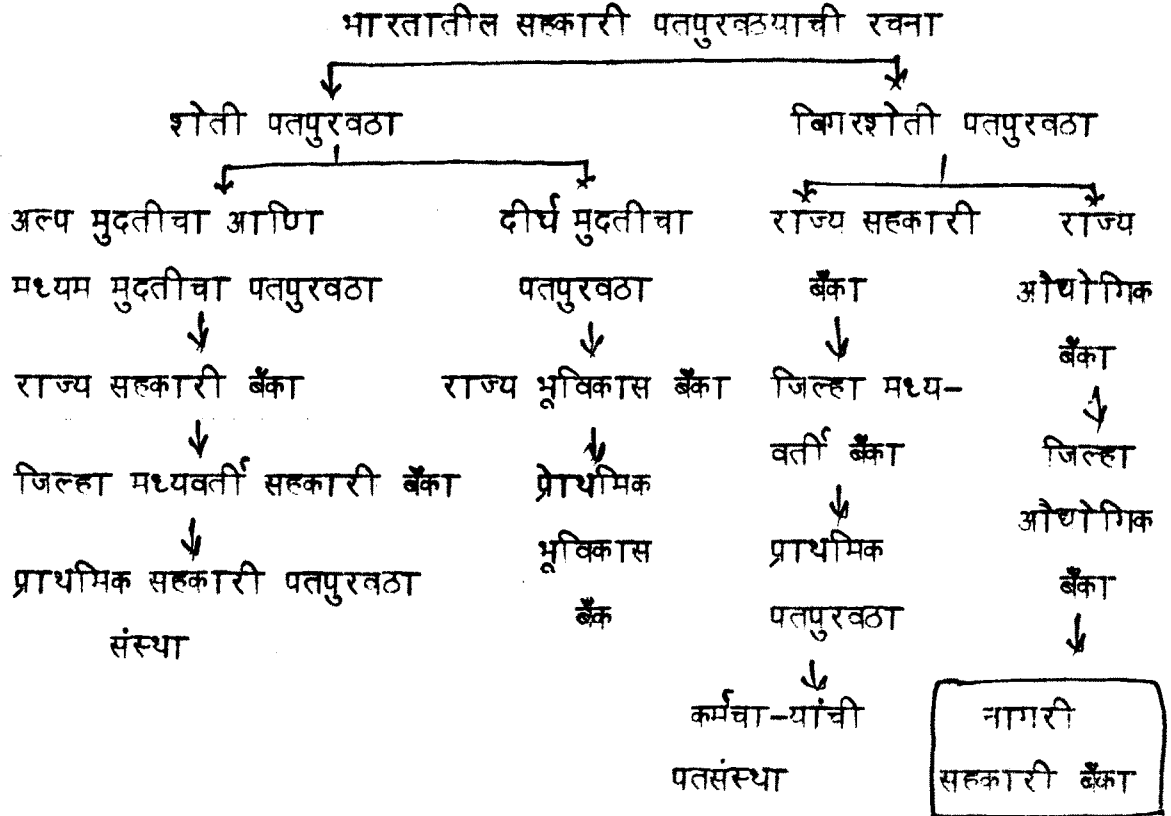 भारतातील सहकारी पतपुरवठयाची रचना
शेती पतपुरवठा
बिगरशेती पतपुरवठा
अल्प मुदतीचा आणि
मध्यम मुदतीचा पतपुरवठा
राज्य सहकारी बँका
जिल्हा मध्यवर्ती सहकारी बँका
प्राथमिक सहकारी पतपुरवठा
संस्था
दीर्घ मुदतीचा
पतपुरवठा
राज्य भूविकास बँका
प्राथमिक
भूविकास
बँक
राज्य सहकारी
बँका
जिल्हा मध्य-
वर्ती बँका
प्राथमिक
पतपुरवठा
कर्मचा-यांची
पतसंस्था
राज्य
औद्योगिक
बँका
जिल्हा
औद्योगिक
बँका
नागरी
सहकारी बँका